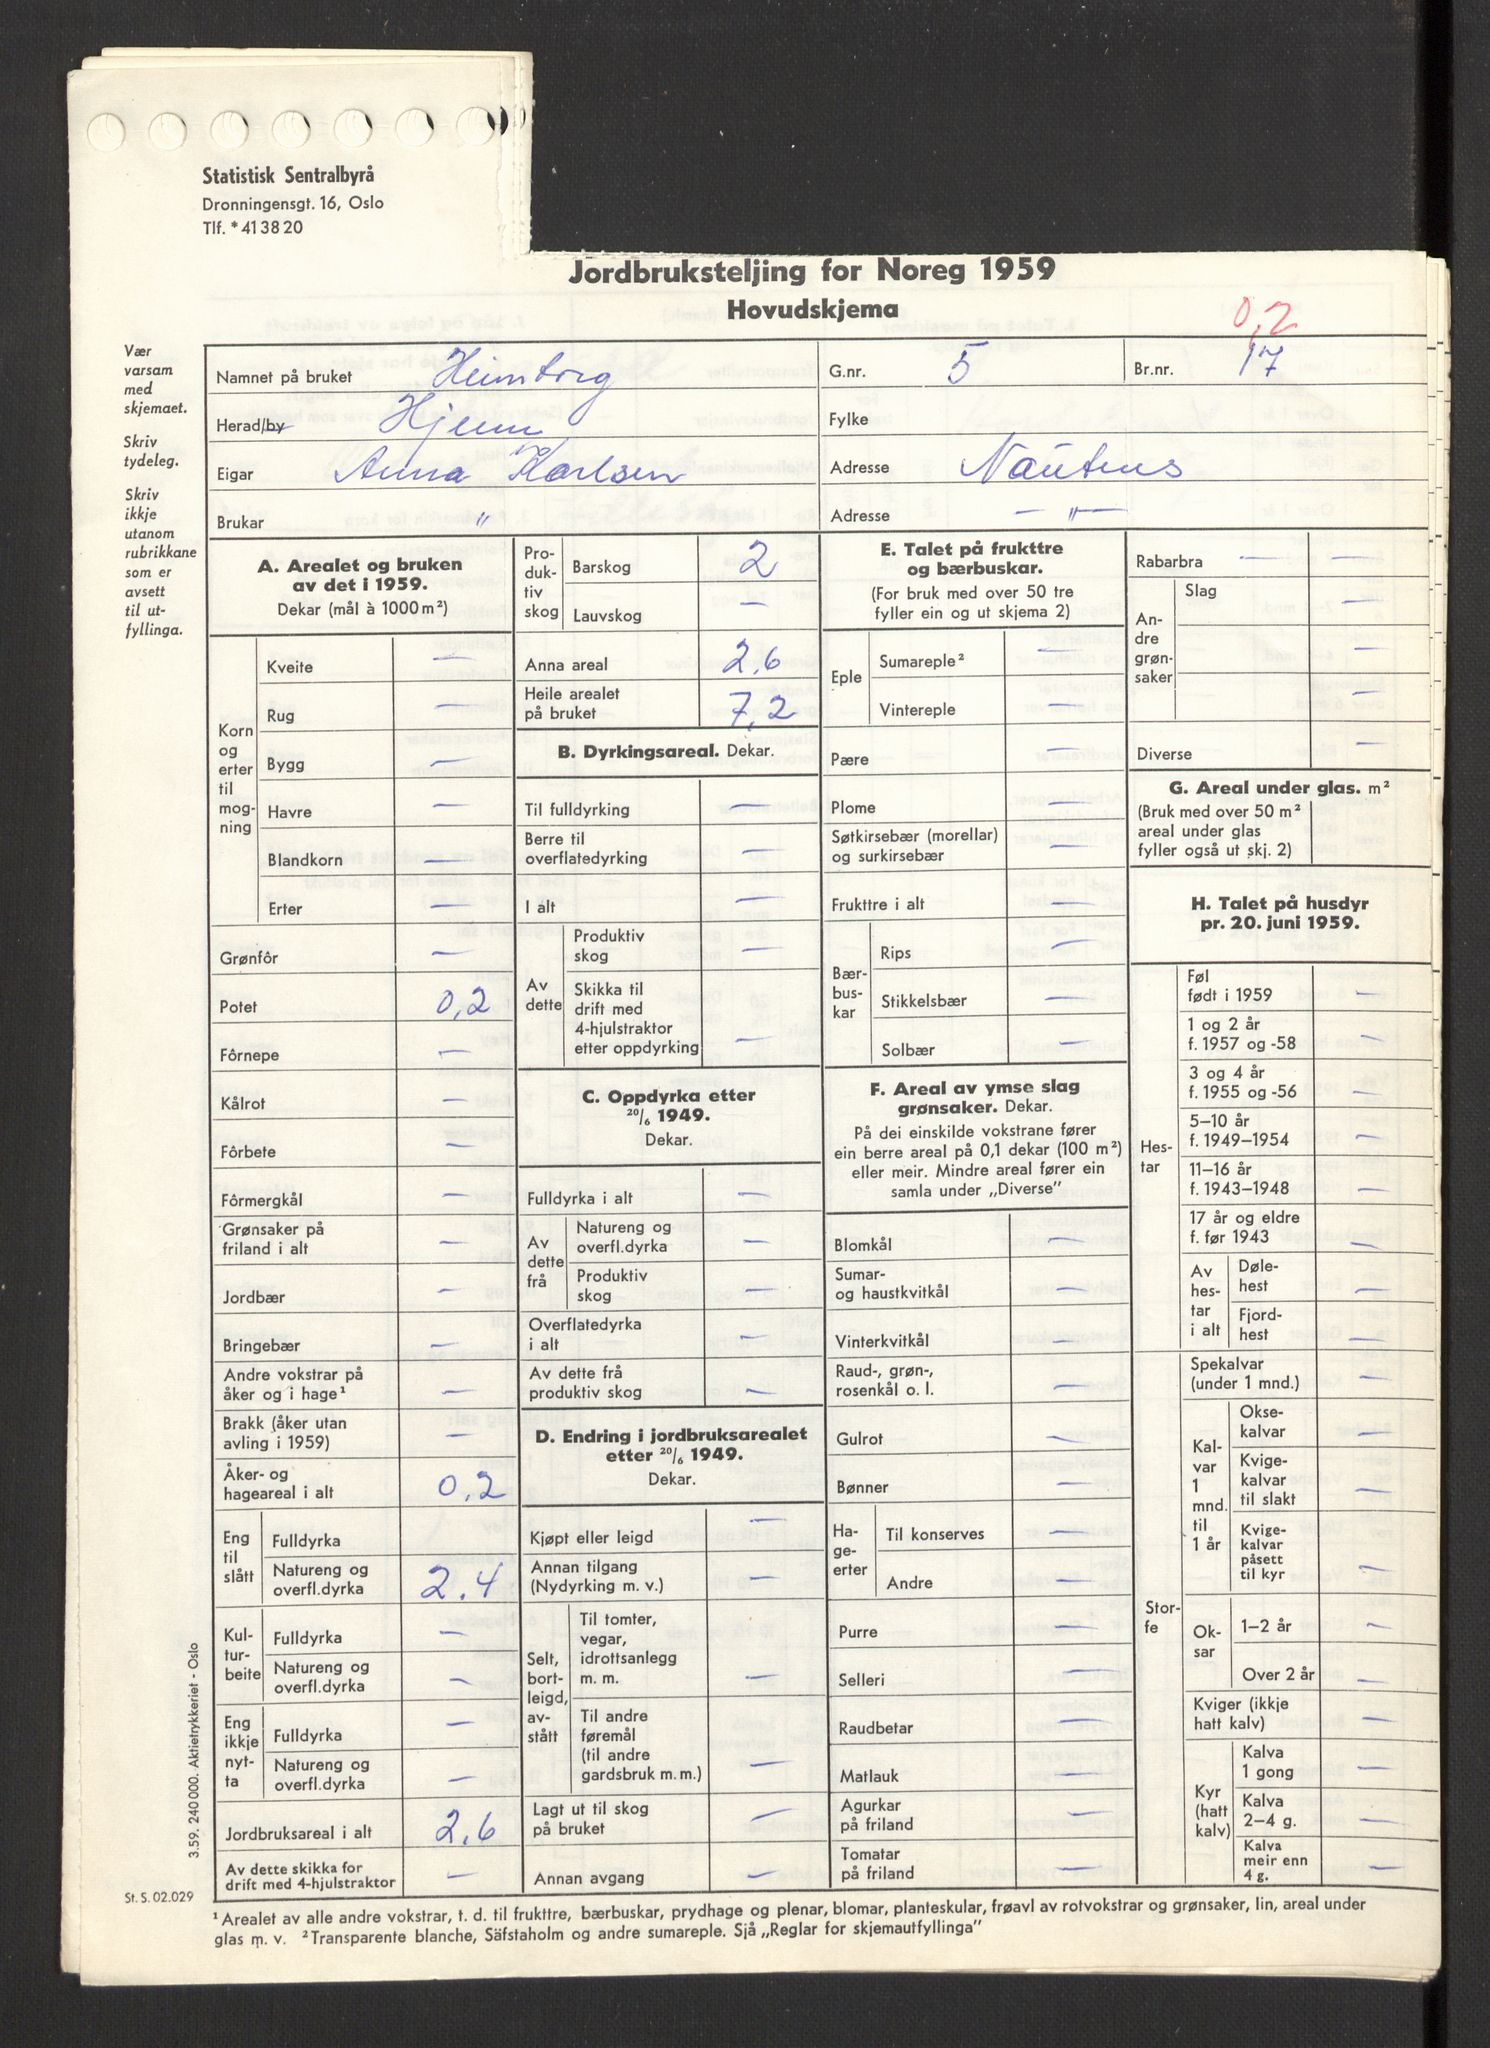 Statistisk Sentralbyrå
Dronningensgt. 16, Oslo
Tlf. * 41 38 20
Jordbruksteljing for Noreg 1959
Hovudskjema
0,2
Vær
varsam
med
skjemaet.
Skriv
tydeleg.
Skriv
ikkje
utanom
rubrikkane
som er
avsett
til ut-
fyllinga.
Namnet på bruket Heimborg G.nr. 5 Br.nr. 17
Herad/by Hjelm Fylke
Eigar Anna Karlsen Adresse
Brukar " Adresse — " —
A. Arealet og bruken
av det i 1959.
Dekar (mål à 1000 m²)
Korn
og
erter
til
mog-
ning
Kveite —
Rug —
Bygg —
Havre —
Blandkorn —
Erter —
Grønfôr —
Potet 0,2
Fôrnepe —
Kålrot —
Fôrbete —
Fôrmergkål —
Grønsaker på
friland i alt —
Jordbær —
Bringebær —
Andre vokstrar på
åker og i hage¹ —
Brakk (åker utan
avling i 1959) —
Åker- og
hageareal i alt 0,2
Eng
til
slått
Fulldyrka
Natureng og
overfl.dyrka 2.4
Kul-
tur-
beite
Fulldyrka —
Natureng og
overfl.dyrka —
Eng
ikkje
nyt-
ta
Fulldyrka —
Natureng og
overfl.dyrka —
Jordbruksareal i alt 2.6
Av dette skikka for
drift med 4-hjulstraktor —
Pro-
duk-
tiv
skog
Barskog 2
Lauvskog —
Anna areal 2,6
Heile arealet
på bruket 7,2
B. Dyrkingsareal. Dekar.
Til fulldyrking —
Berre til
overflatedyrking —
I alt —
Av
dette
Produktiv
skog —
Skikka til
drift med
4-hjulstraktor
etter oppdyrking —
C. Oppdyrka etter
20/6 1949.
Dekar.
Fulldyrka i alt —
Av
dette
frå
Natureng og
overfl.dyrka —
Produktiv
skog —
Overflatedyrka
i alt —
Av dette frå
produktiv skog —
D. Endring i jordbruksarealet
etter 20/6 1949.
Dekar.
Kjøpt eller leigd —
Annan tilgang
(Nydyrking m. v.) —
Selt,
bort-
leigd,
av-
stått
Til tomter,
vegar,
idrottsanlegg
m. m. —
Til andre
føremål
(til andre
gardsbruk m. m.) —
Lagt ut til skog
på bruket —
Annan avgang —
E. Talet på frukttre
og bærbuskar.
(For bruk med over 50 tre
fyller ein og ut skjema 2)
Eple
Sumareple² —
Vintereple —
Pære —
Plome —
Søtkirsebær (morellar)
og surkirsebær —
Frukttre i alt —
Bær-
bus-
kar
Rips —
Stikkelsbær —
Solbær —
F. Areal av ymse slag
grønsaker. Dekar.
På dei einskilde vokstrane fører
ein berre areal på 0,1 dekar (100 m²)
eller meir. Mindre areal fører ein
samla under „Diverse”
Blomkål —
Sumar-
og haustkvitkål —
Vinterkvitkål —
Raud-, grøn-,
rosenkål o. l. —
Gulrot —
Bønner —
Ha-
ge-
erter
Til konserves —
Andre —
Purre —
Selleri —
Raudbetar —
Matlauk —
Agurkar
på friland —
Tomatar
på friland —
Rabarbra — —
An-
dre
grøn-
saker
Slag
—
—
—
Diverse —
G. Areal under glas. m²
(Bruk med over 50 m²
areal under glas
fyller også ut skj. 2)
H. Talet på husdyr
pr. 20. juni 1959.
Hes-
tar
Føl
født i 1959 —
1 og 2 år
f. 1957 og -58 —
3 og 4 år
f. 1955 og -56 —
5–10 år
f. 1949–1954 —
11–16 år
f. 1943–1948 —
17 år og eldre
f. før 1943 —
Av
hes-
tar
i alt
Døle-
hest —
Fjord-
hest —
Stor-
fe
Spekalvar
(under 1 mnd.) —
Kal-
var
1
mnd.
til
1 år
Okse-
kalvar —
Kvige-
kalvar
til slakt —
Kvige-
kalvar
påsett
til kyr —
Ok-
sar
1–2 år —
Over 2 år —
Kviger (ikkje
hatt kalv) —
Kyr
(hatt
kalv)
Kalva
1 gong —
Kalva
2–4 g. —
Kalva
meir enn
4 g. —
3.59. 240 000. Aktietrykkeriet - Oslo
St. S. 02.029
¹ Arealet av alle andre vokstrar, t. d. til frukttre, bærbuskar, prydhage og plenar, blomar, planteskular, frøavl av rotvokstrar og grønsaker, lin, areal under
glas m. v. ² Transparente blanche, Säfstaholm og andre sumareple. Sjå „Reglar for skjemautfyllinga”